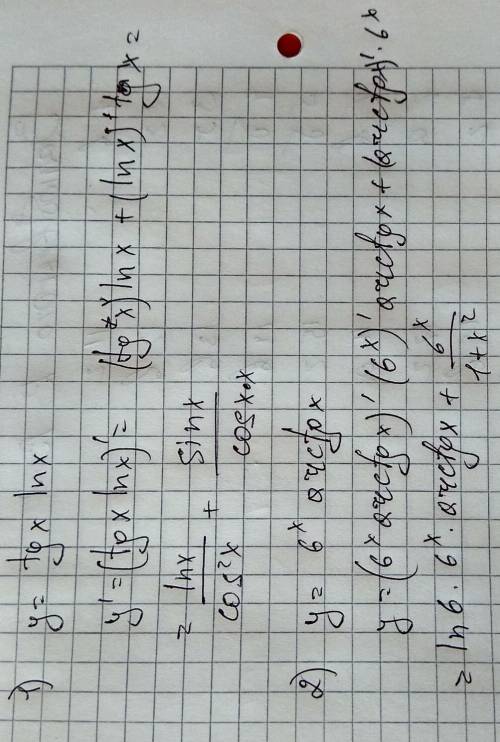 1) y = tg x ln x
y' = (tg x ln x)' = (tg x)' ln x + (ln x)' tg x =
= ln x / cos² x + sin x / cos x · x
2) y = 6ˣ arctg x
y = (6ˣ arctg x)' (6ˣ)' arctg x + (arctg x)' · 6ˣ
= ln 6 · 6ˣ · arctg x + 6ˣ / 1 + x²